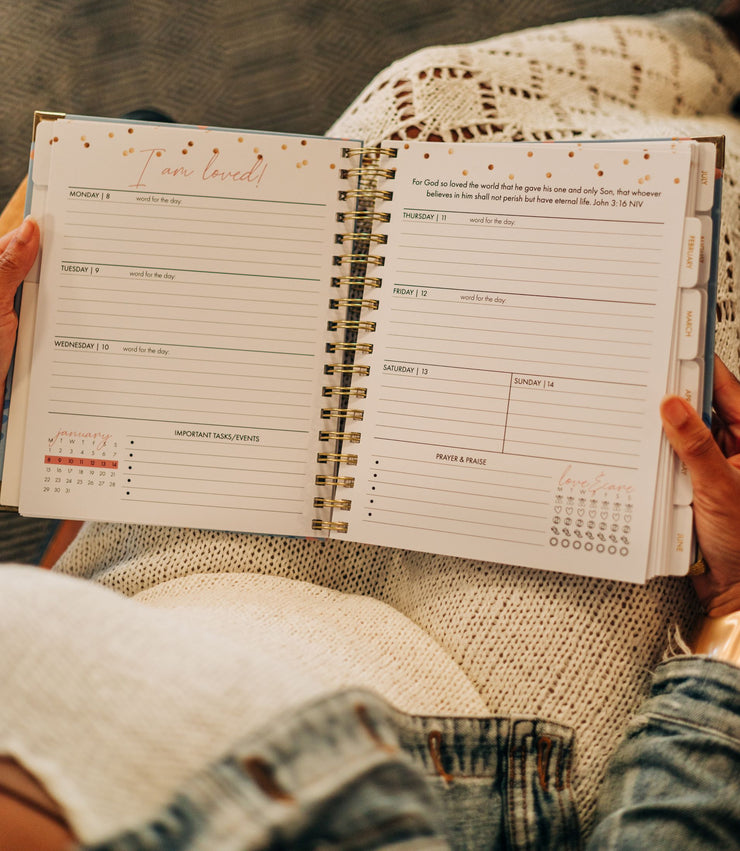 I am loved!
MONDAY | 8 word for the day:
TUESDAY | 9 word for the day:
WEDNESDAY | 10 word for the day:
january
M T W T F S S
1 2 3 4 5 6 7
8 9 10 11 12 13 14
15 16 17 18 19 20 21
22 23 24 25 26 27 28
29 30 31
IMPORTANT TASKS/EVENTS
For God so loved the world that he gave his one and only Son, that whoever
believes in him shall not perish but have eternal life. John 3:16 NIV
THURSDAY | 11 word for the day:
FRIDAY | 12 word for the day:
SATURDAY | 13
SUNDAY | 14
PRAYER & PRAISE
love&care
M T W T F S S
JULY
FEBRUARY
MARCH
JUNE